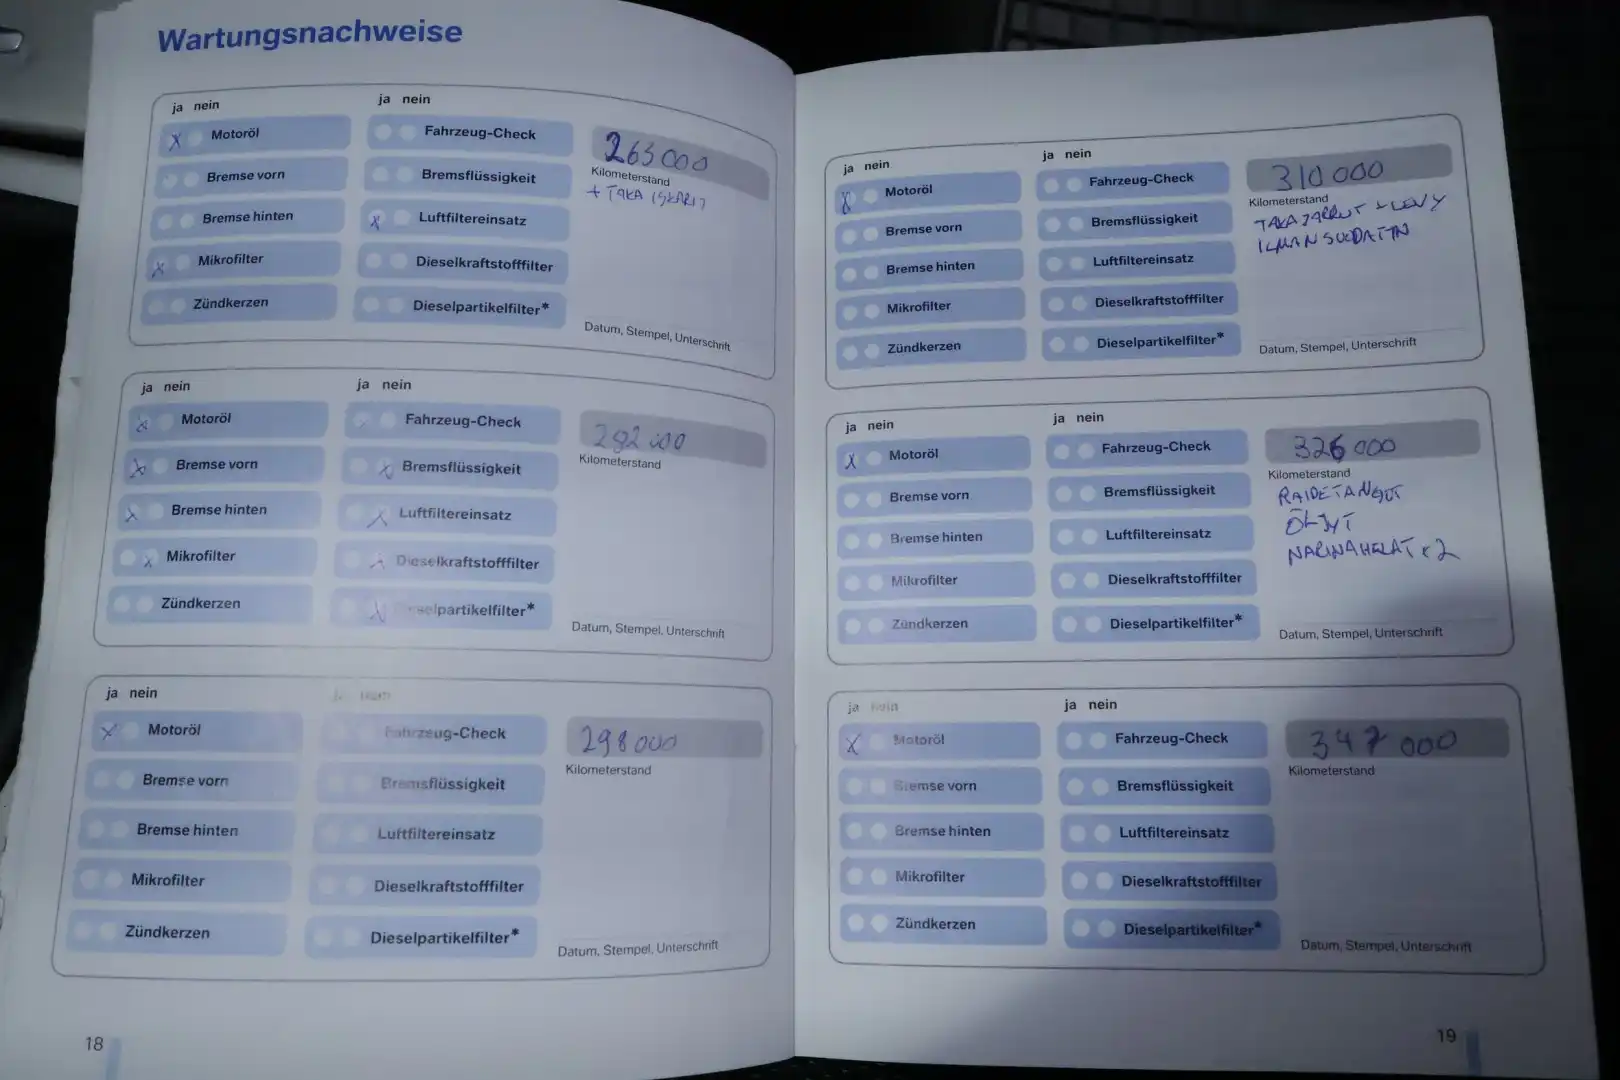 Wartungsnachweise
ja nein
ja nein
X Motoröl
Fahrzeug-Check
263000
Kilometerstand
Bremse vorn
Bremsflüssigkeit
+ TAKA ISKARIT
Bremse hinten
X Luftfiltereinsatz
X Mikrofilter
Dieselkraftstofffilter
Zündkerzen
Dieselpartikelfilter*
Datum, Stempel, Unterschrift
ja nein
ja nein
X Motoröl
Fahrzeug-Check
282000
Kilometerstand
X Bremse vorn
X Bremsflüssigkeit
X Bremse hinten
X Luftfiltereinsatz
X Mikrofilter
X Dieselkraftstofffilter
Zündkerzen
X Dieselpartikelfilter*
Datum, Stempel, Unterschrift
ja nein
ja nein
X Motoröl
Fahrzeug-Check
298000
Kilometerstand
Bremse vorn
Bremsflüssigkeit
Bremse hinten
Luftfiltereinsatz
Mikrofilter
Dieselkraftstofffilter
Zündkerzen
Dieselpartikelfilter*
Datum, Stempel, Unterschrift
18
ja nein
ja nein
X Motoröl
Fahrzeug-Check
310000
Kilometerstand
Bremse vorn
Bremsflüssigkeit
TAKAJARRUT + LEVY
ILMANSUODATIN
Bremse hinten
Luftfiltereinsatz
Mikrofilter
Dieselkraftstofffilter
Zündkerzen
Dieselpartikelfilter*
Datum, Stempel, Unterschrift
ja nein
ja nein
X Motoröl
Fahrzeug-Check
326000
Kilometerstand
Bremse vorn
Bremsflüssigkeit
RAIDETANGOT
ÖLJYT
Bremse hinten
Luftfiltereinsatz
x2
Mikrofilter
Dieselkraftstofffilter
Zündkerzen
Dieselpartikelfilter*
Datum, Stempel, Unterschrift
ja nein
ja nein
X Motoröl
Fahrzeug-Check
347000
Kilometerstand
Bremse vorn
Bremsflüssigkeit
Bremse hinten
Luftfiltereinsatz
Mikrofilter
Dieselkraftstofffilter
Zündkerzen
Dieselpartikelfilter*
Datum, Stempel, Unterschrift
19